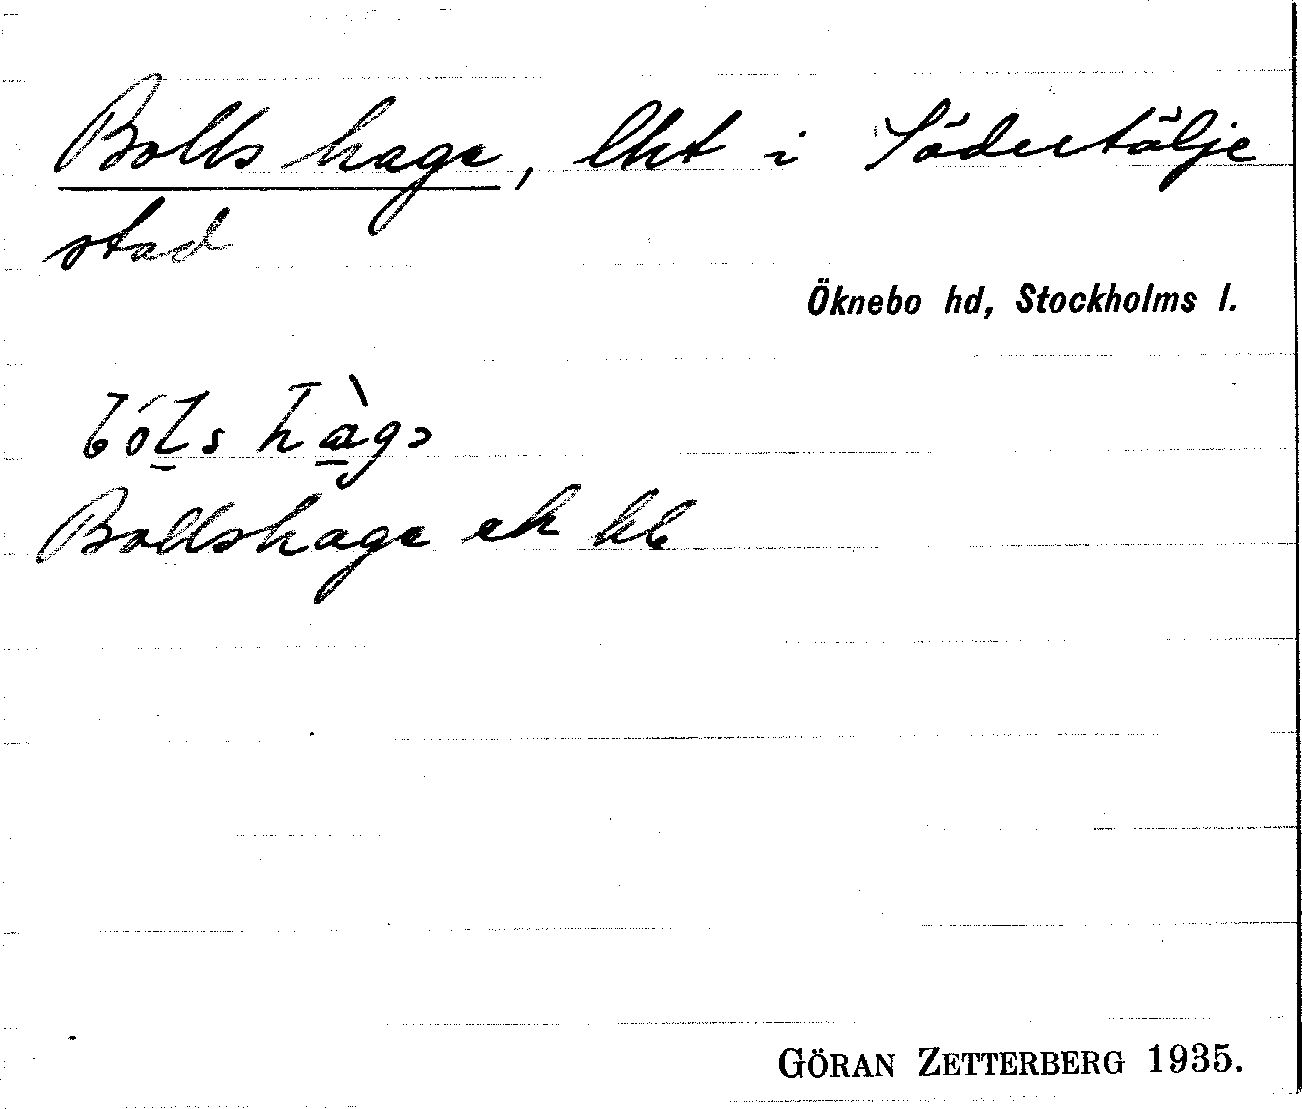 Bolls hage, lht i Södertälje
stad
Öknebo hd, Stockholms l.
ból̲s hà̲gɔ
Bollshage ek kb
GÖRAN ZETTERBERG 1935.